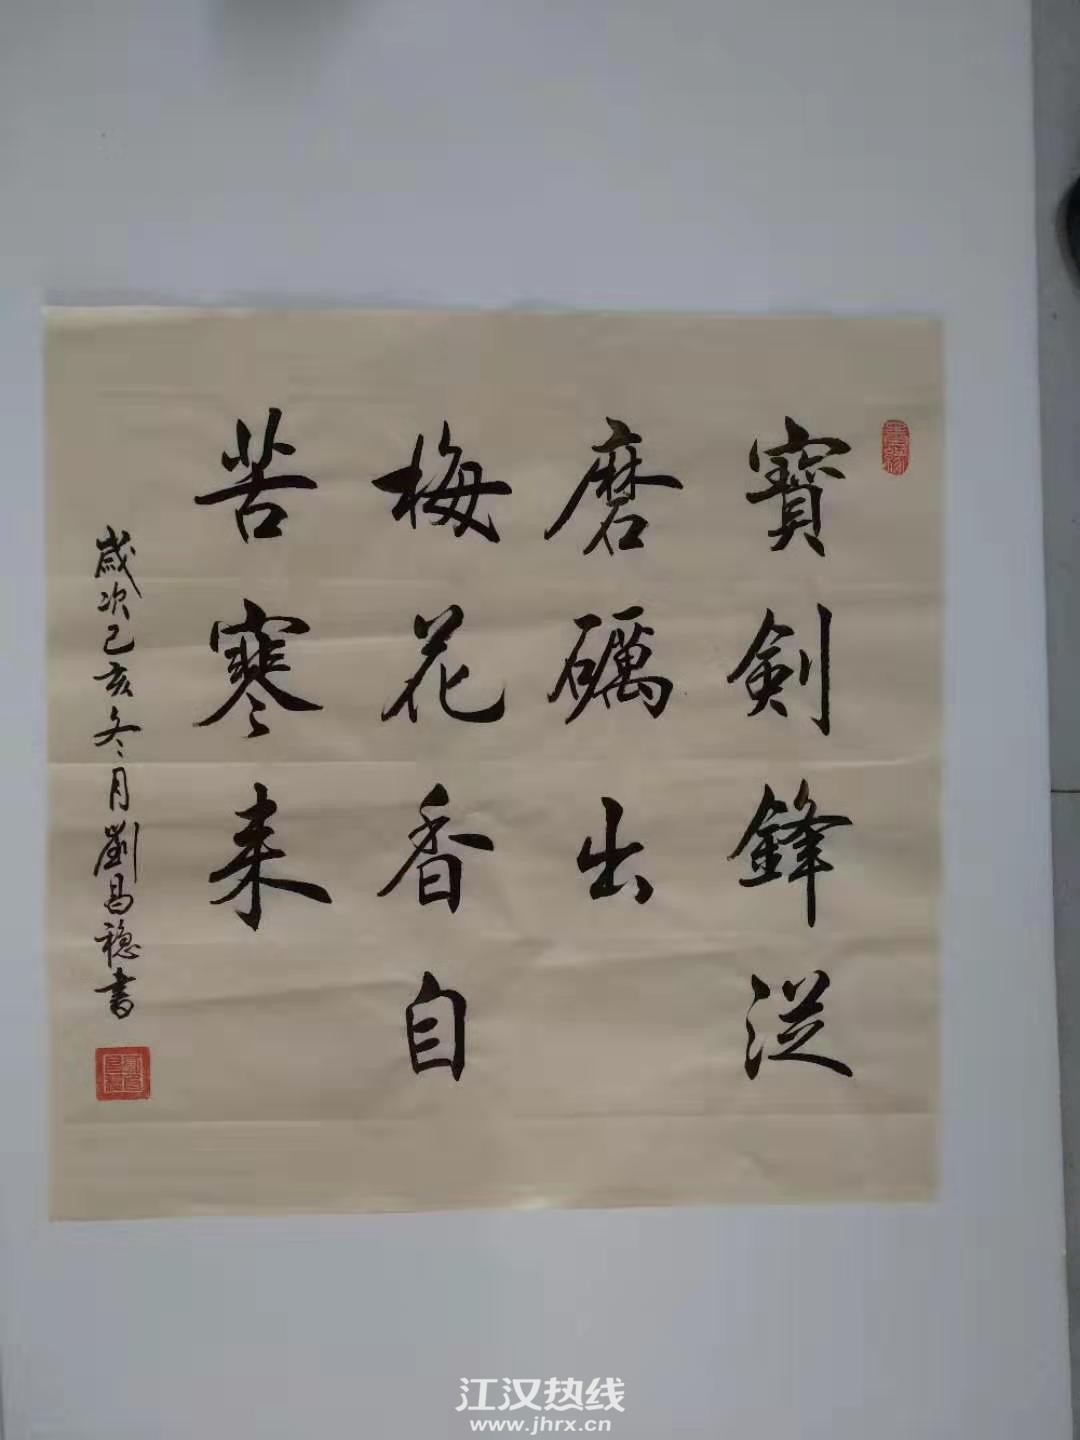 寶劍鋒從
磨礪出
梅花香自
苦寒来
歲次己亥冬月劉昌穩書
江汉热线
www.jhrx.cn